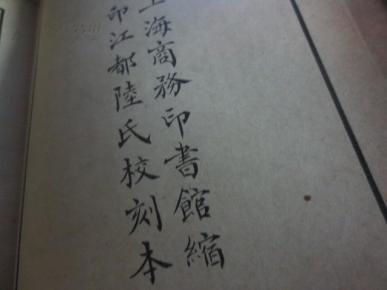 上海商務印書館縮
印江都陸氏校刻本